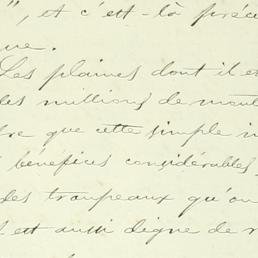 ", et c'est-là préc
ue.
Les plaines dont il es
des millions de mout
re que cette simple in
bénéfices considérables,
des troupeaux qu'on
est aussi digne de r